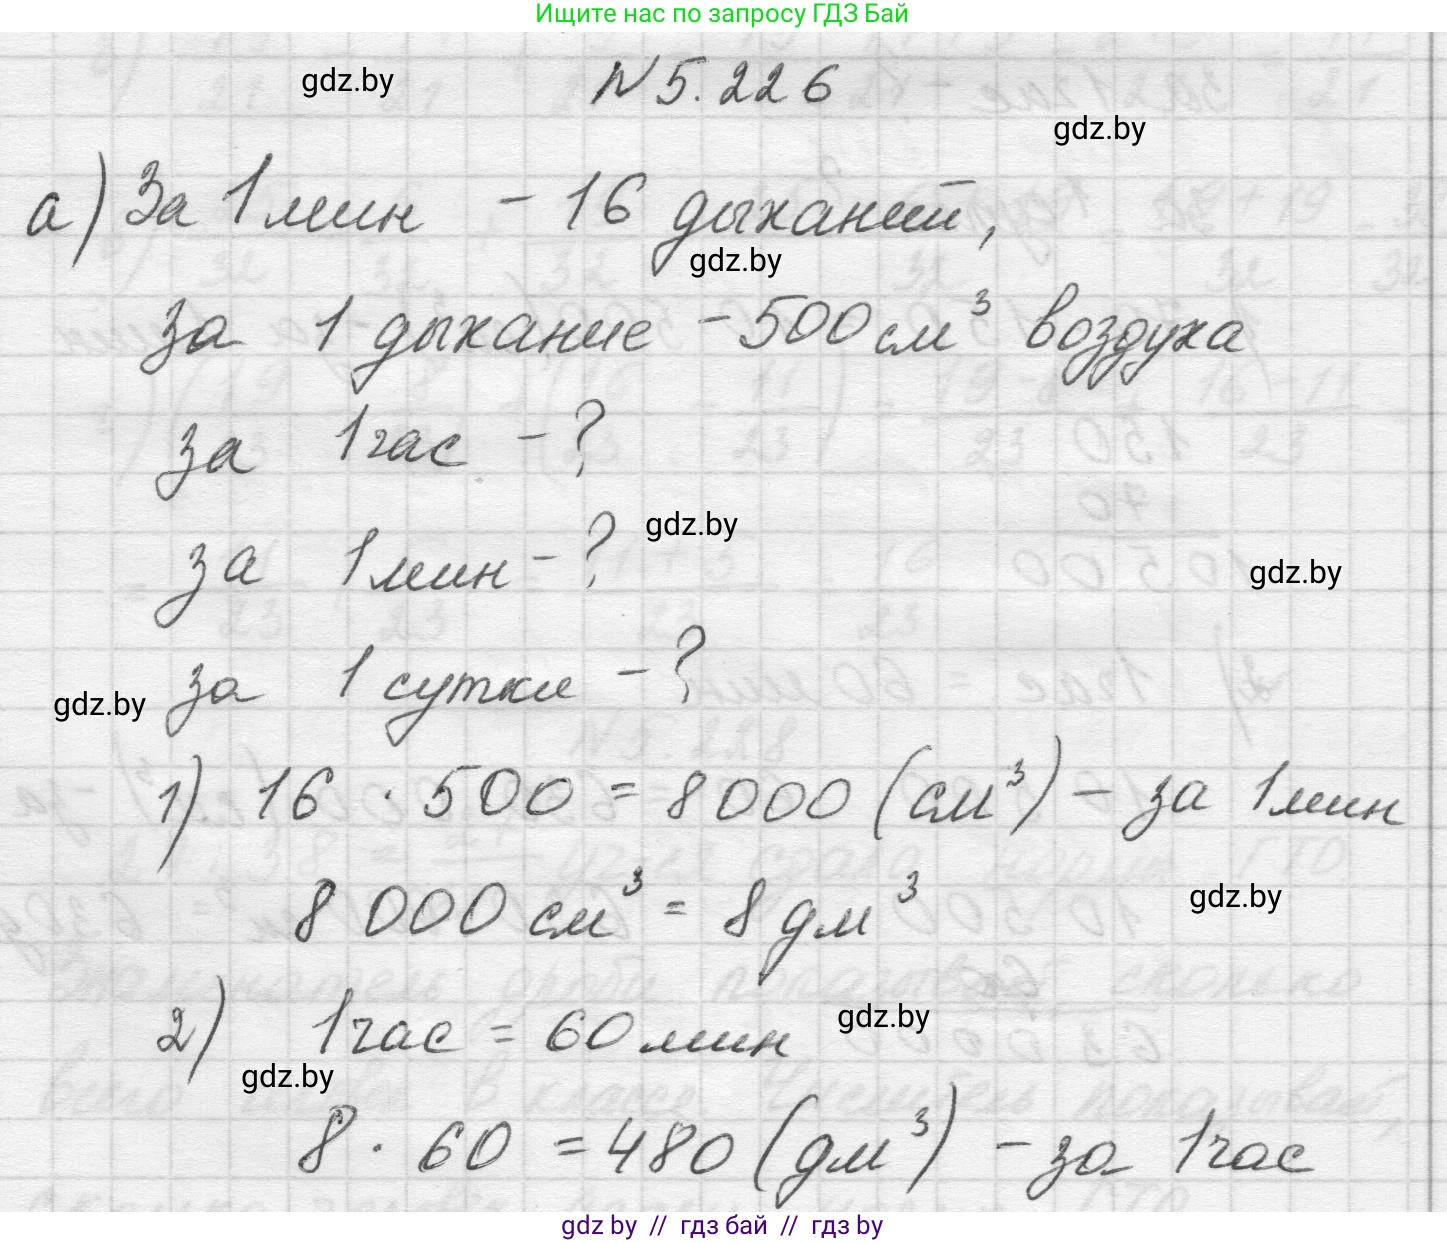 Ищите нас по запросу ГДЗ Бай
gdz.by
N 5.226
gdz.by
а) За 1 мин - 16 дыханий,
gdz.by
за 1 дыхание - 500 см³ воздуха
за 1 час - ?
за 1 мин - ?
gdz.by
gdz.by
за 1 сутки - ?
gdz.by
1) 16 · 500 = 8000 (см³) - за 1 мин
8 000 см³ = 8 дм³
gdz.by
2) 1 час = 60 мин
gdz.by
gdz.by
8 · 60 = 480 (дм³) - за 1 час
gdz by // гдз бай // гдз by